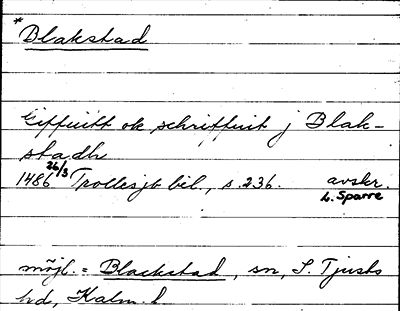 * Blakstad
Giffuitt ok schriffuit j Blak-
stadh
1486 26/3 Trollesjö bil., s. 236. avskr.
L. Sparre
möjl. = Blackstad, sn, S. Tjusts
hd, Kalm. l